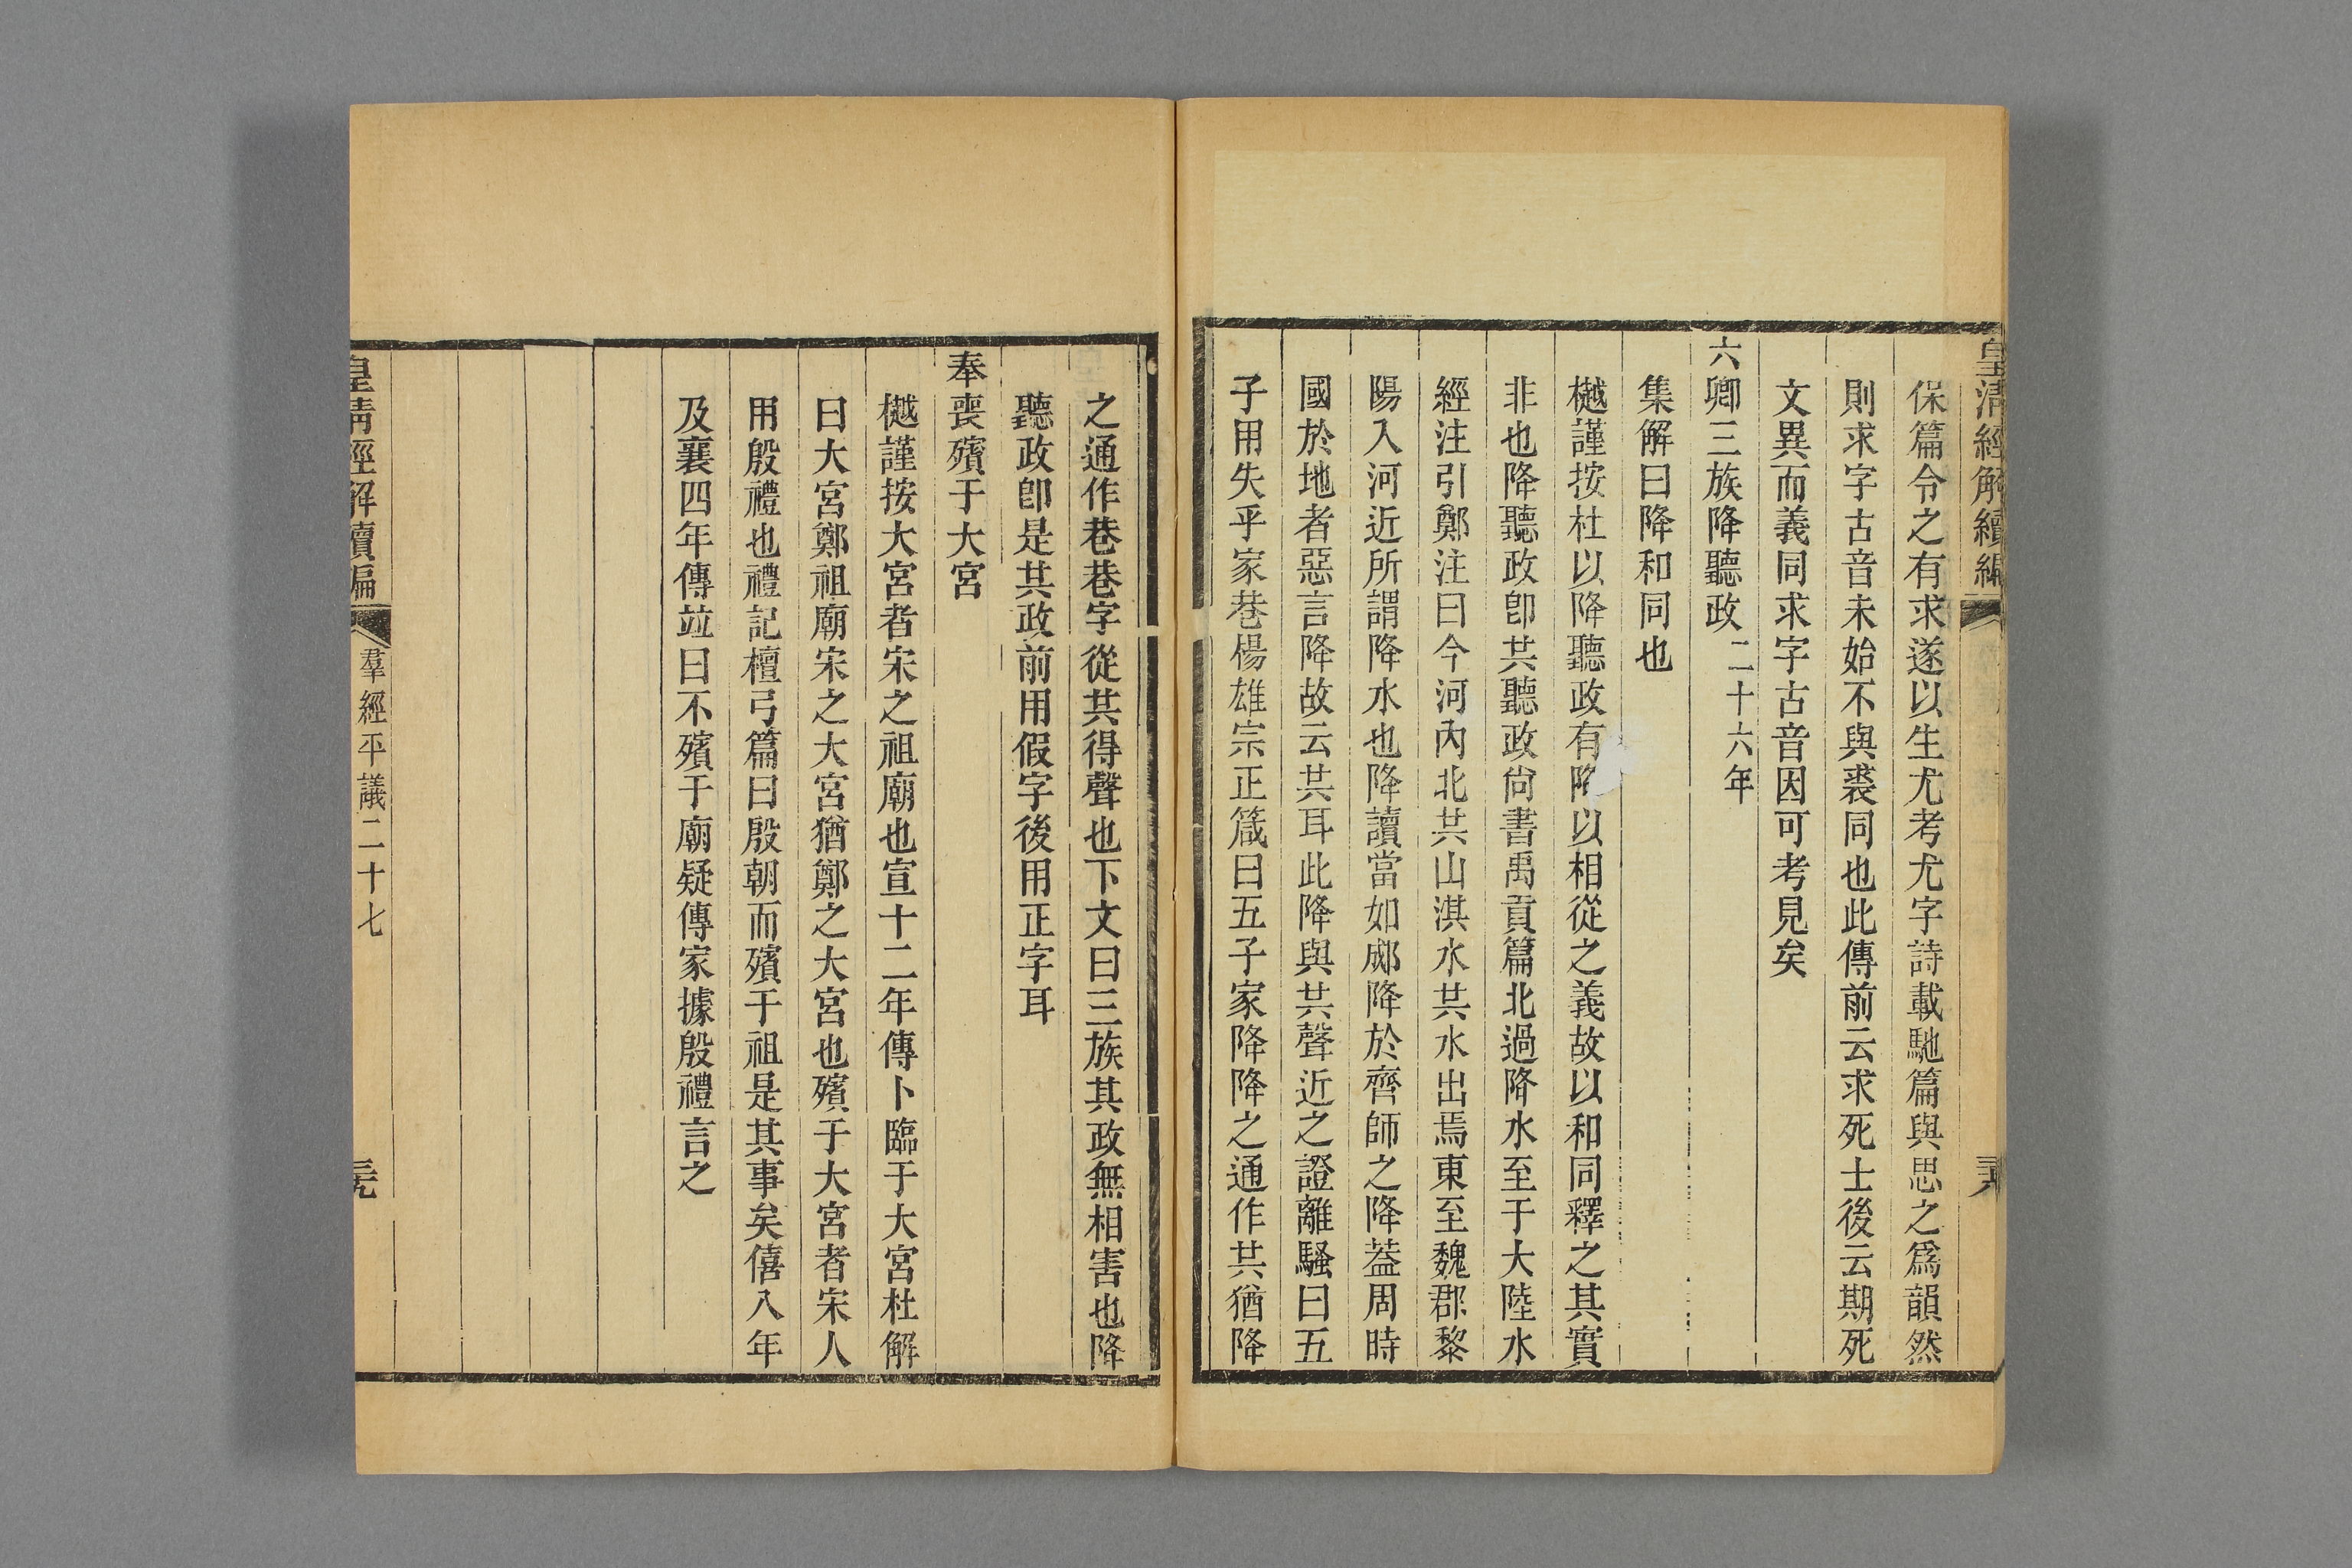 皇清經解續編
保篇令之有求遂以生尤考尤字詩載馳篇與思之爲韻然
則求字古音未始不與裘同也此傳前云求死士後云期死
文異而義同求字古音因可考見矣
六卿三族降聽政二十六年
集解曰降和同也
樾謹按杜以降聽政有降以相從之義故以和同釋之其實
非也降聽政卽共聽政尙書禹貢篇北過降水至于大陸水
經注引鄭注曰今河內北共山淇水共水出焉東至魏郡黎
陽入河近所謂降水也降讀當如郕降於齊師之降葢周時
國於地者惡言降故云共耳此降與共聲近之證離騷曰五
子用失乎家巷楊雄宗正箴曰五子家降降之通作共猶降
之通作巷巷字從共得聲也下文曰三族共政無相害也降
聽政卽是共政前用假字後用正字耳
奉喪殯于大宮
樾謹按大宮者宋之祖廟也宣十二年傳卜臨于大宮杜解
曰大宮鄭祖廟宋之大宮猶鄭之大宮也殯于大宮者宋人
用殷禮也禮記檀弓篇曰殷朝而殯于祖是其事矣僖八年
及襄四年傳竝曰不殯于廟疑傳家據殷禮言之
皇清經解續編
羣經平議二十七